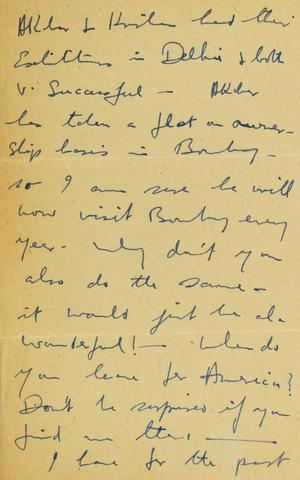 Akbar & Krishen had their
Exhibitions in Delhi & both
v. Successful — Akbar
has taken a flat on owner-
ship basis in Bombay -
so I am sure he will
now visit Bombay every
year - why don't you
also do the same -
it would just be
wonderful! — When do
you leave for America?
Don't be surprised if you
find me there —
I have for the past